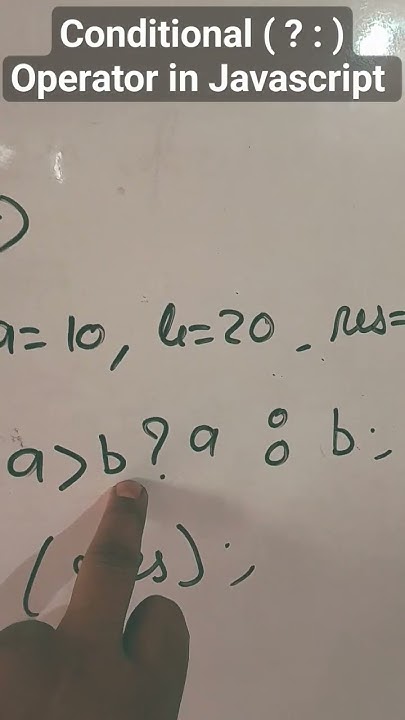 Conditional ( ? : )
Operator in Javascript
)
a= 10, b=20, res=
a>b ? a : b;
(res);